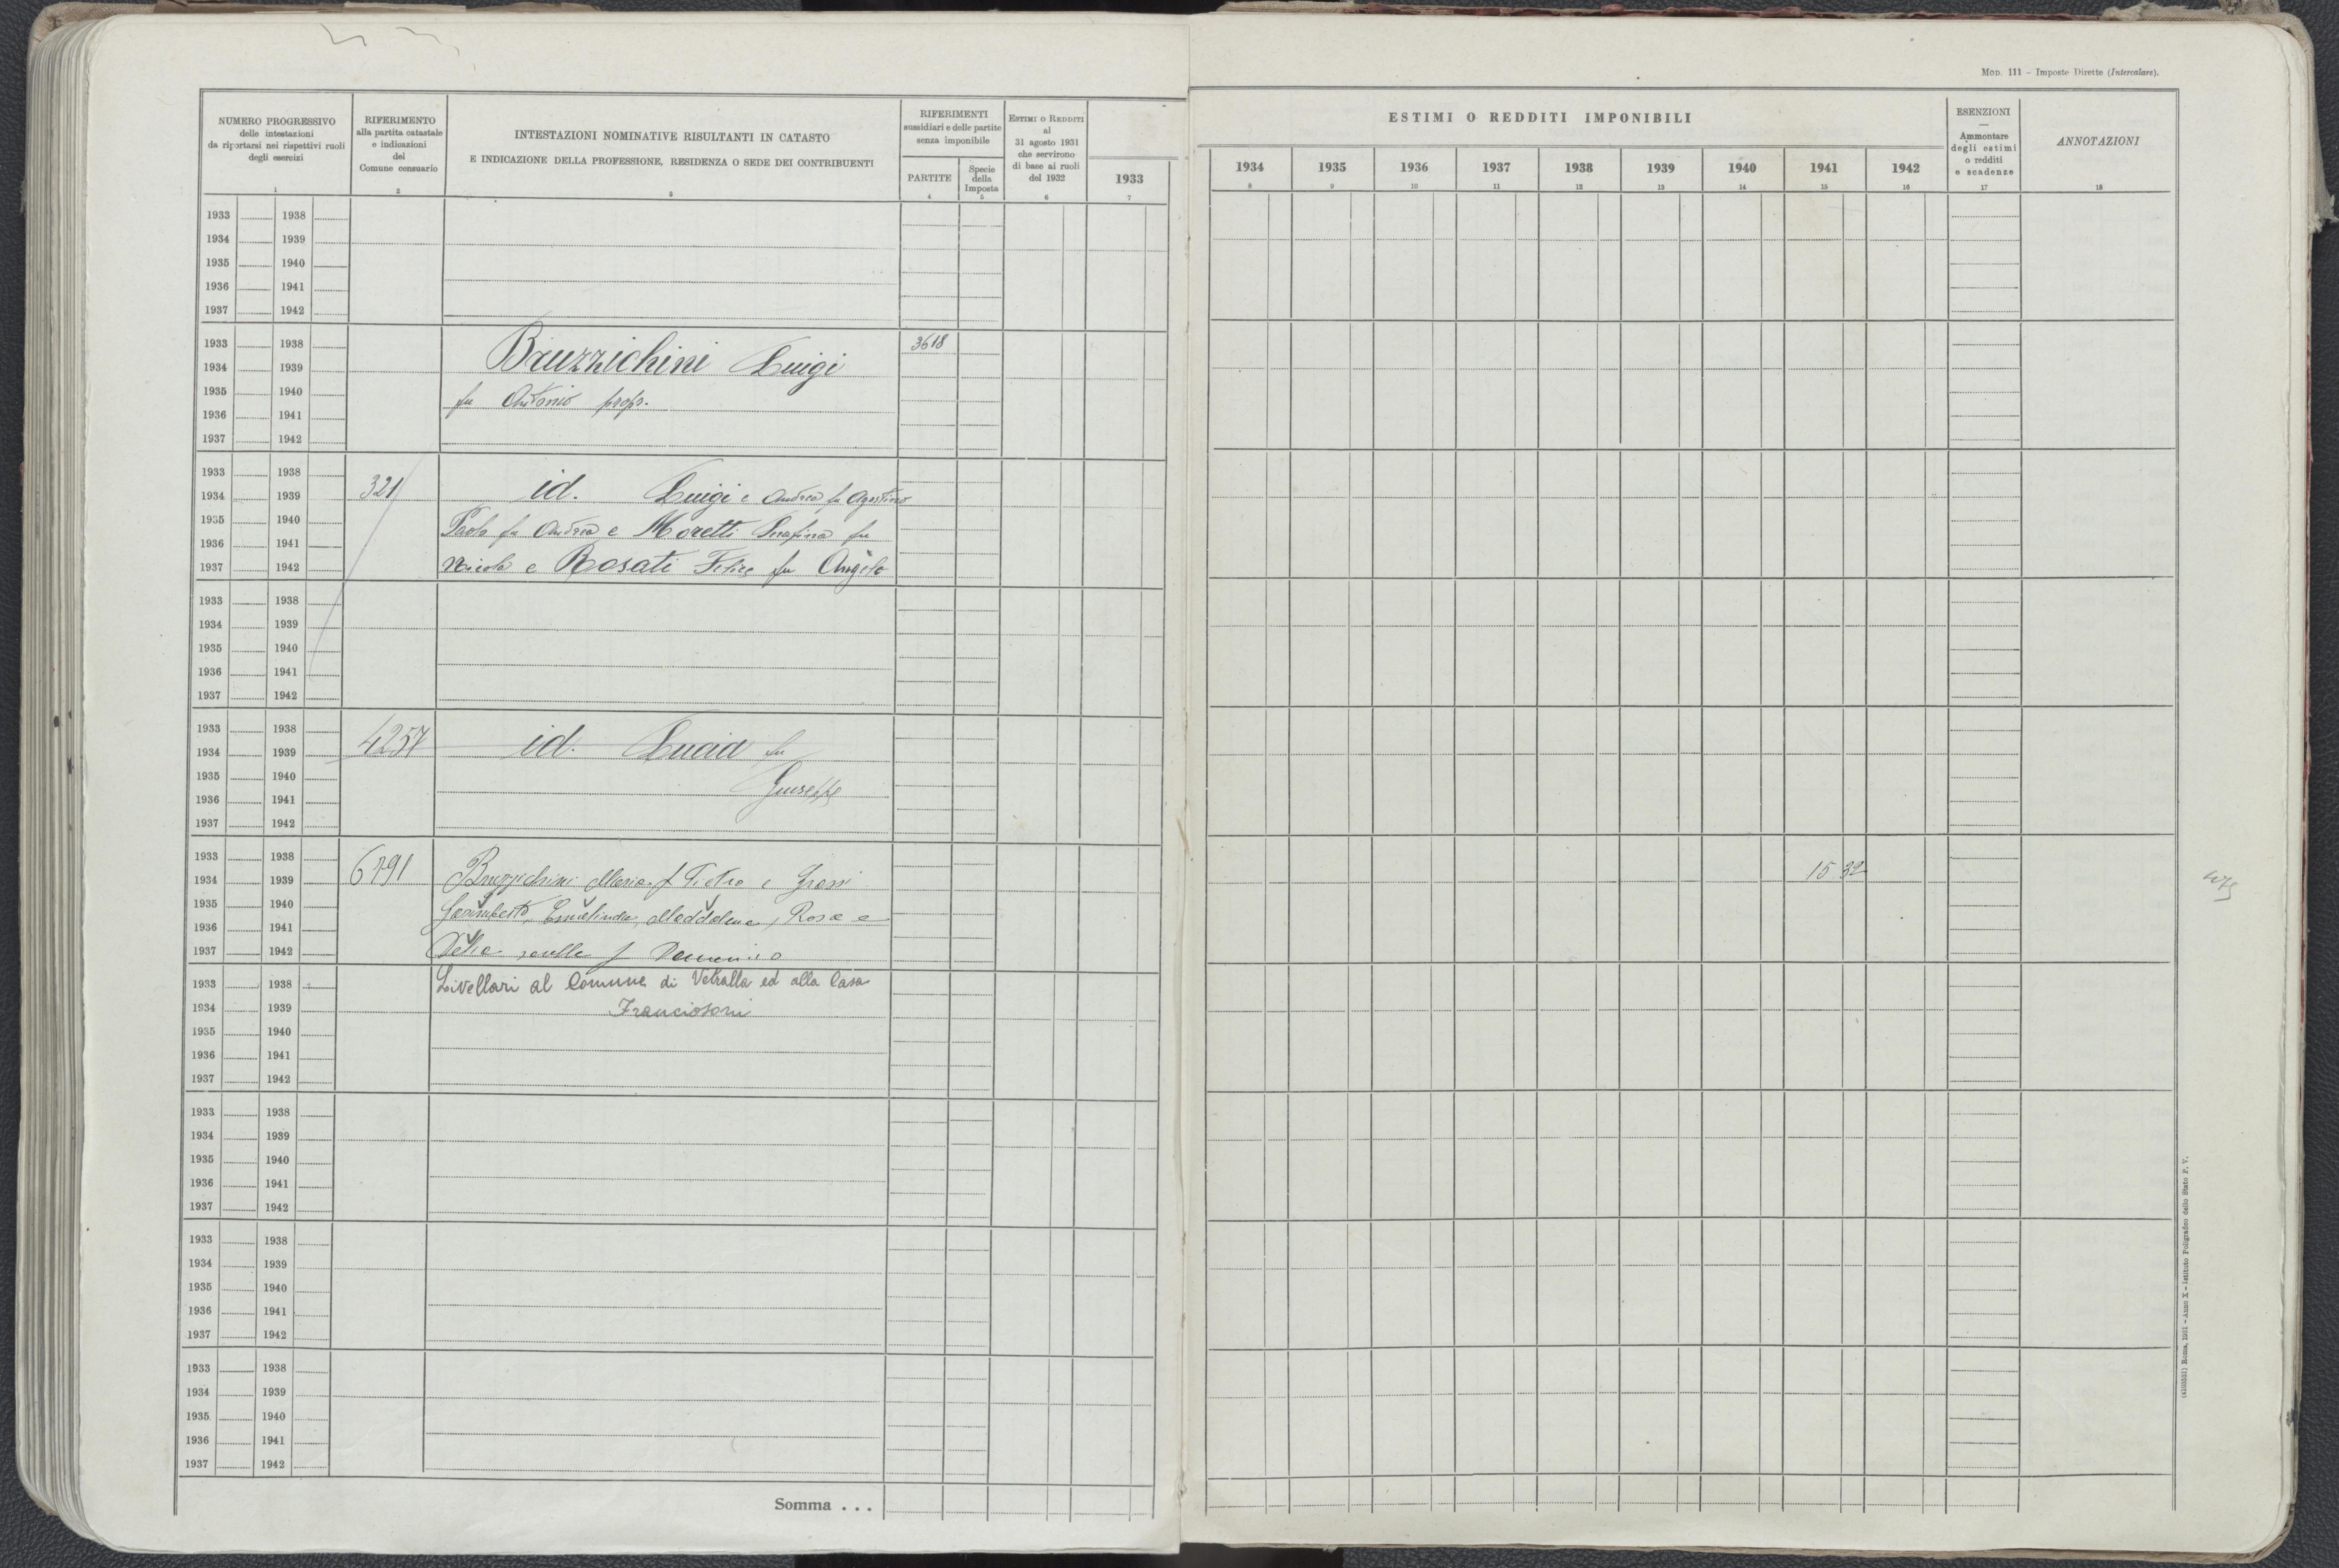 MOD. 111 – Imposte Dirette (Intercalare).
NUMERO PROGRESSIVO
delle intestazioni
da riportarsi nei rispettivi ruoli
degli esercizi
1
RIFERIMENTO
alla partita catastale
e indicazioni
del
Comune censuario
2
INTESTAZIONI NOMINATIVE RISULTANTI IN CATASTO
E INDICAZIONE DELLA PROFESSIONE, RESIDENZA O SEDE DEI CONTRIBUENTI
3
RIFERIMENTI
sussidiari e delle partite
senza imponibile
PARTITE
4
Specie
della
Imposta
5
ESTIMI O REDDITI
al
31 agosto 1931
che servirono
di base ai ruoli
del 1932
6
1933
7
ESTIMI O REDDITI IMPONIBILI
1934 1935 1936 1937 1938 1939 1940 1941 1942
8 9 10 11 12 13 14 15 16
ESENZIONI
—
Ammontare
degli estimi
o redditi
e scadenze
17
ANNOTAZIONI
18
1933 1938
1934 1939
1935 1940
1936 1941
1937 1942
1933 1938 3618
1934 1939 Bruzzichini Luigi
1935 1940 fu Antonio prop.
1936 1941
1937 1942
1933 1938
1934 1939 321 id. Luigi e Andrea fu Agostino
1935 1940 Paolo fu Andrea e Moretti Serafina fu
1936 1941
1937 1942 Nicola e Rosati Felice fu Angelo
1933 1938
1934 1939
1935 1940
1936 1941
1937 1942
1933 1938
1934 1939 4257 id. Lucia fu
1935 1940
1936 1941 Giuseppe
1937 1942
1933 1938
1934 1939 6791 Bruzzichini Maria f Pietro e Grossi 15 32
1935 1940
1936 1941 Ermelinda, Maddalena, Rosa e
1937 1942 f Domenico
1933 1938 Livellari al Comune di Vetralla ed alla Casa
1934 1939 Franciosoni
1935 1940
1936 1941
1937 1942
1933 1938
1934 1939
1935 1940
1936 1941
1937 1942
1933 1938
1934 1939
1935 1940
1936 1941
1937 1942
1933 1938
1934 1939
1935 1940
1936 1941
1937 1942
Somma . . .
(4105551) Roma, 1931 - Anno X - Istituto Poligrafico dello Stato P. V.